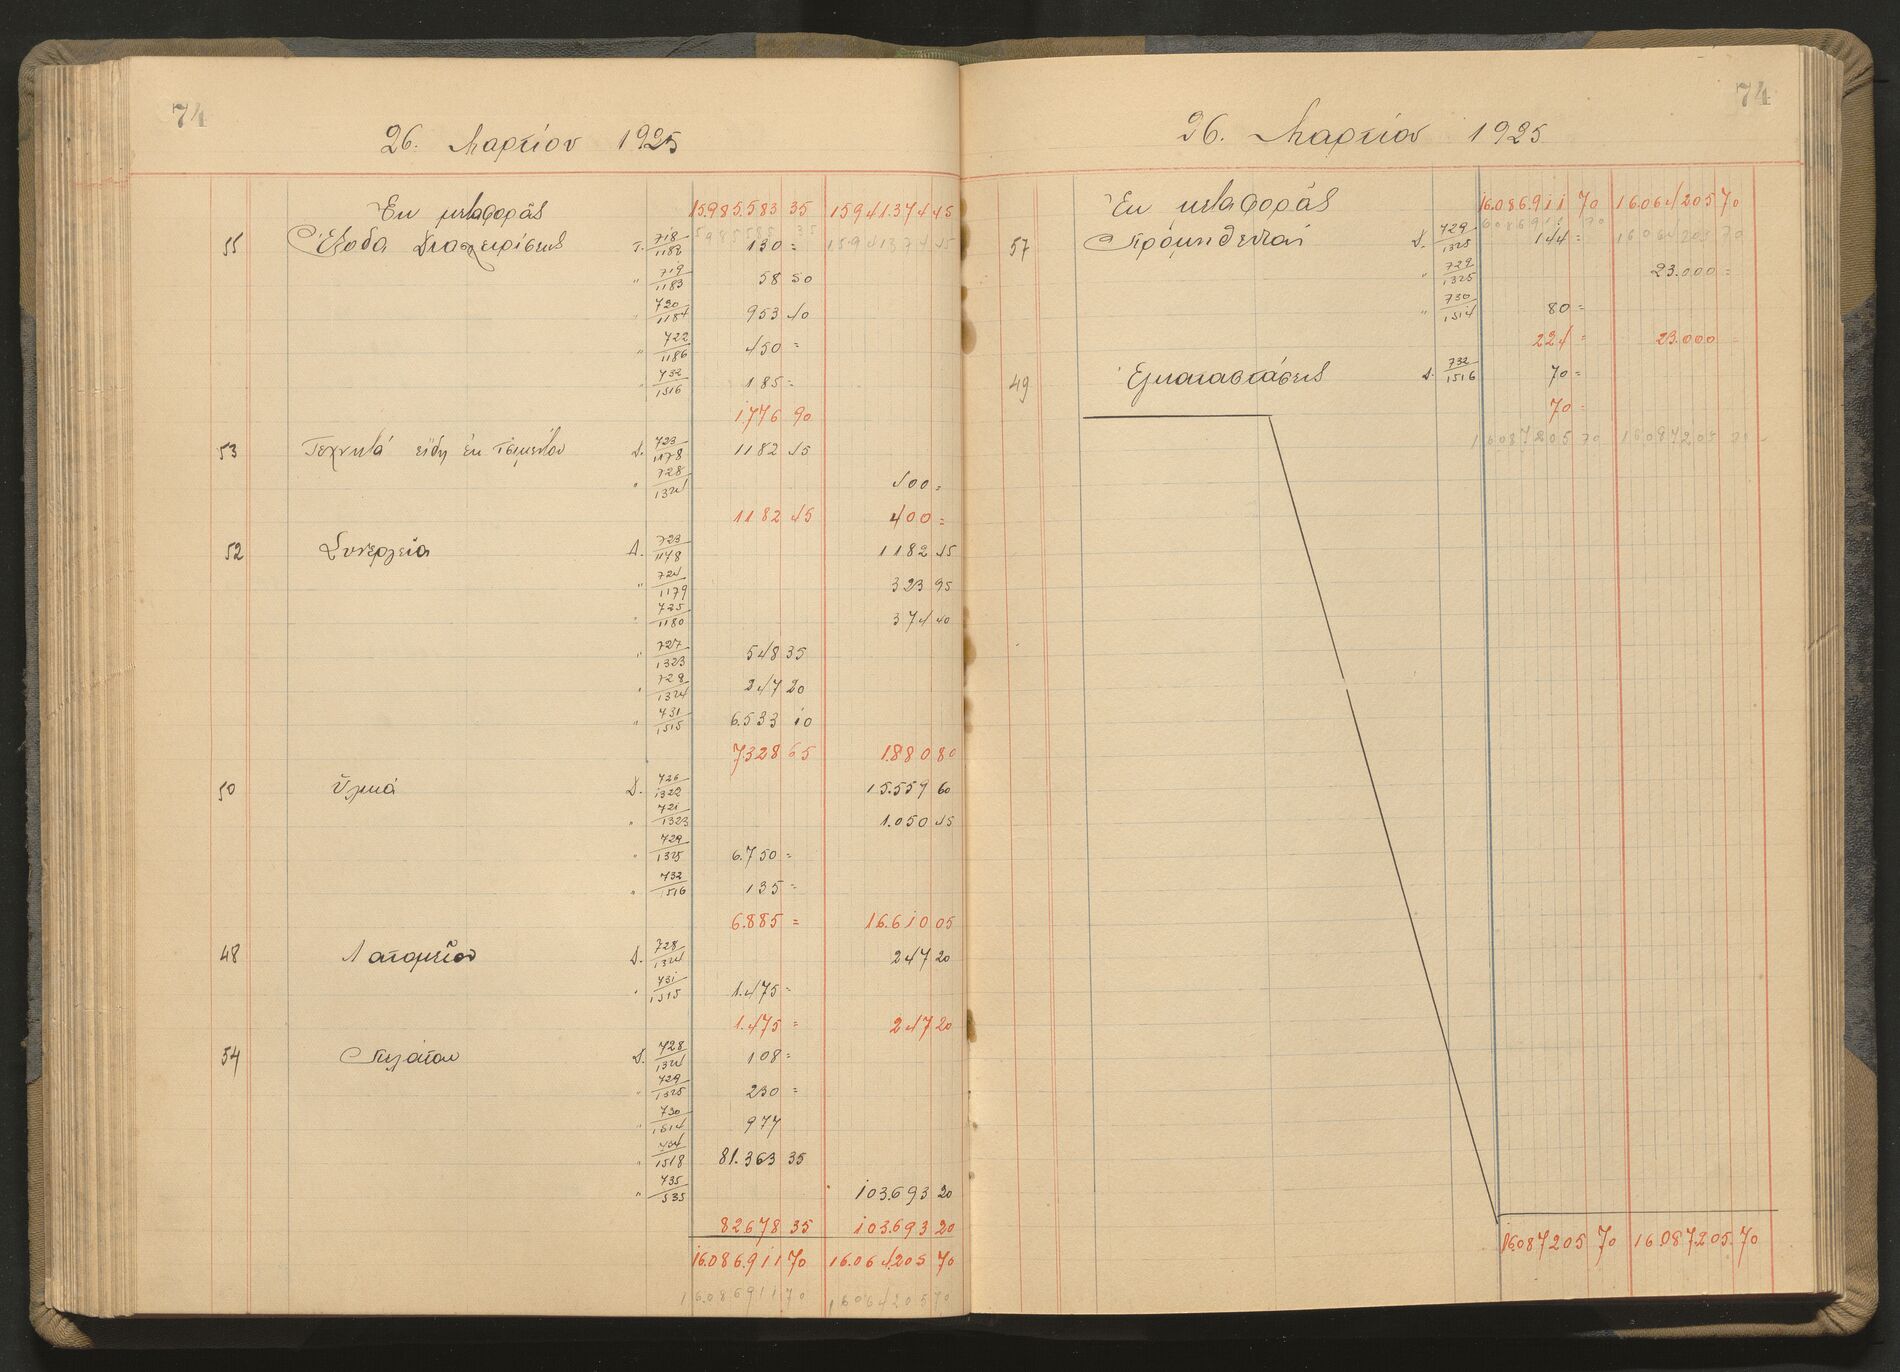 74
26. Μαρτίου 1925
Ἐκ μεταφορᾶς 15.985.583 35 15941.374 45
15985583 35 15941374 45
55 Ἔξοδα Διαχειρίσεως Τ. 718/1182 130 =
" 719/1183 58 50
" 720/1184 953 40
" 722/1186 450 =
" 732/1516 185 =
1.776 90
53 Τεχνητά εἴδη ἐκ Τσιμέντου Δ. 723/1178 1182 45
" 728/1324 400 =
1182 45 400 =
52 Συνεργεῖα Δ. 723/1178 1182 45
" 724/1179 323 95
" 725/1180 374 40
" 727/1323 548 35
" 728/1324 247 20
" 731/1515 6.533 10
7.328 65 1.880 80
50 Ὑλικά Δ. 726/1322 15.559 60
" 727/1323 1.050 45
" 729/1325 6.750 =
" 732/1516 135 =
6.885 = 16.610 05
48 Λατομεῖον Δ. 728/1324 247 20
" 731/1515 1.475 =
1.475 = 247 20
54 Πελάται Δ. 728/1324 108 =
" 729/1325 230 =
" 730/1514 977
" 734/1518 81.363 35
" 735/535 103.693 20
82.678 35 103.693 20
16.086.911 70 16.064.205 70
16.086911 70 16064205 70
74
26. Μαρτίου 1925
Ἐκ μεταφορᾶς 16.086.911 70 16.064205 70
16086911 70 16064205 70
57 Προμηθευταί Δ. 729/1325 144 =
" 729/1325 23.000 =
" 730/1514 80 =
224 = 23.000 =
49 Ἐγκαταστάσεις Δ. 732/1516 70 =
70 =
16087205 70 16.087205 70
16.087205 70 16.087.205 70